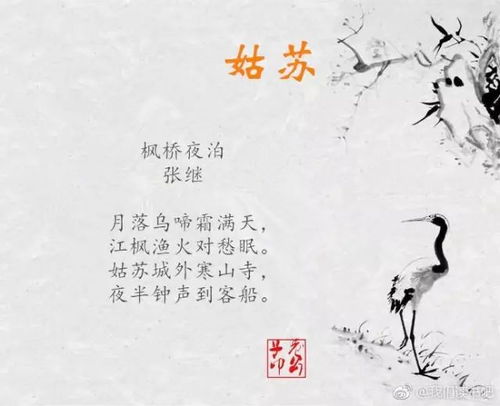 姑苏
枫桥夜泊
张继
月落乌啼霜满天，
江枫渔火对愁眠。
姑苏城外寒山寺，
夜半钟声到客船。